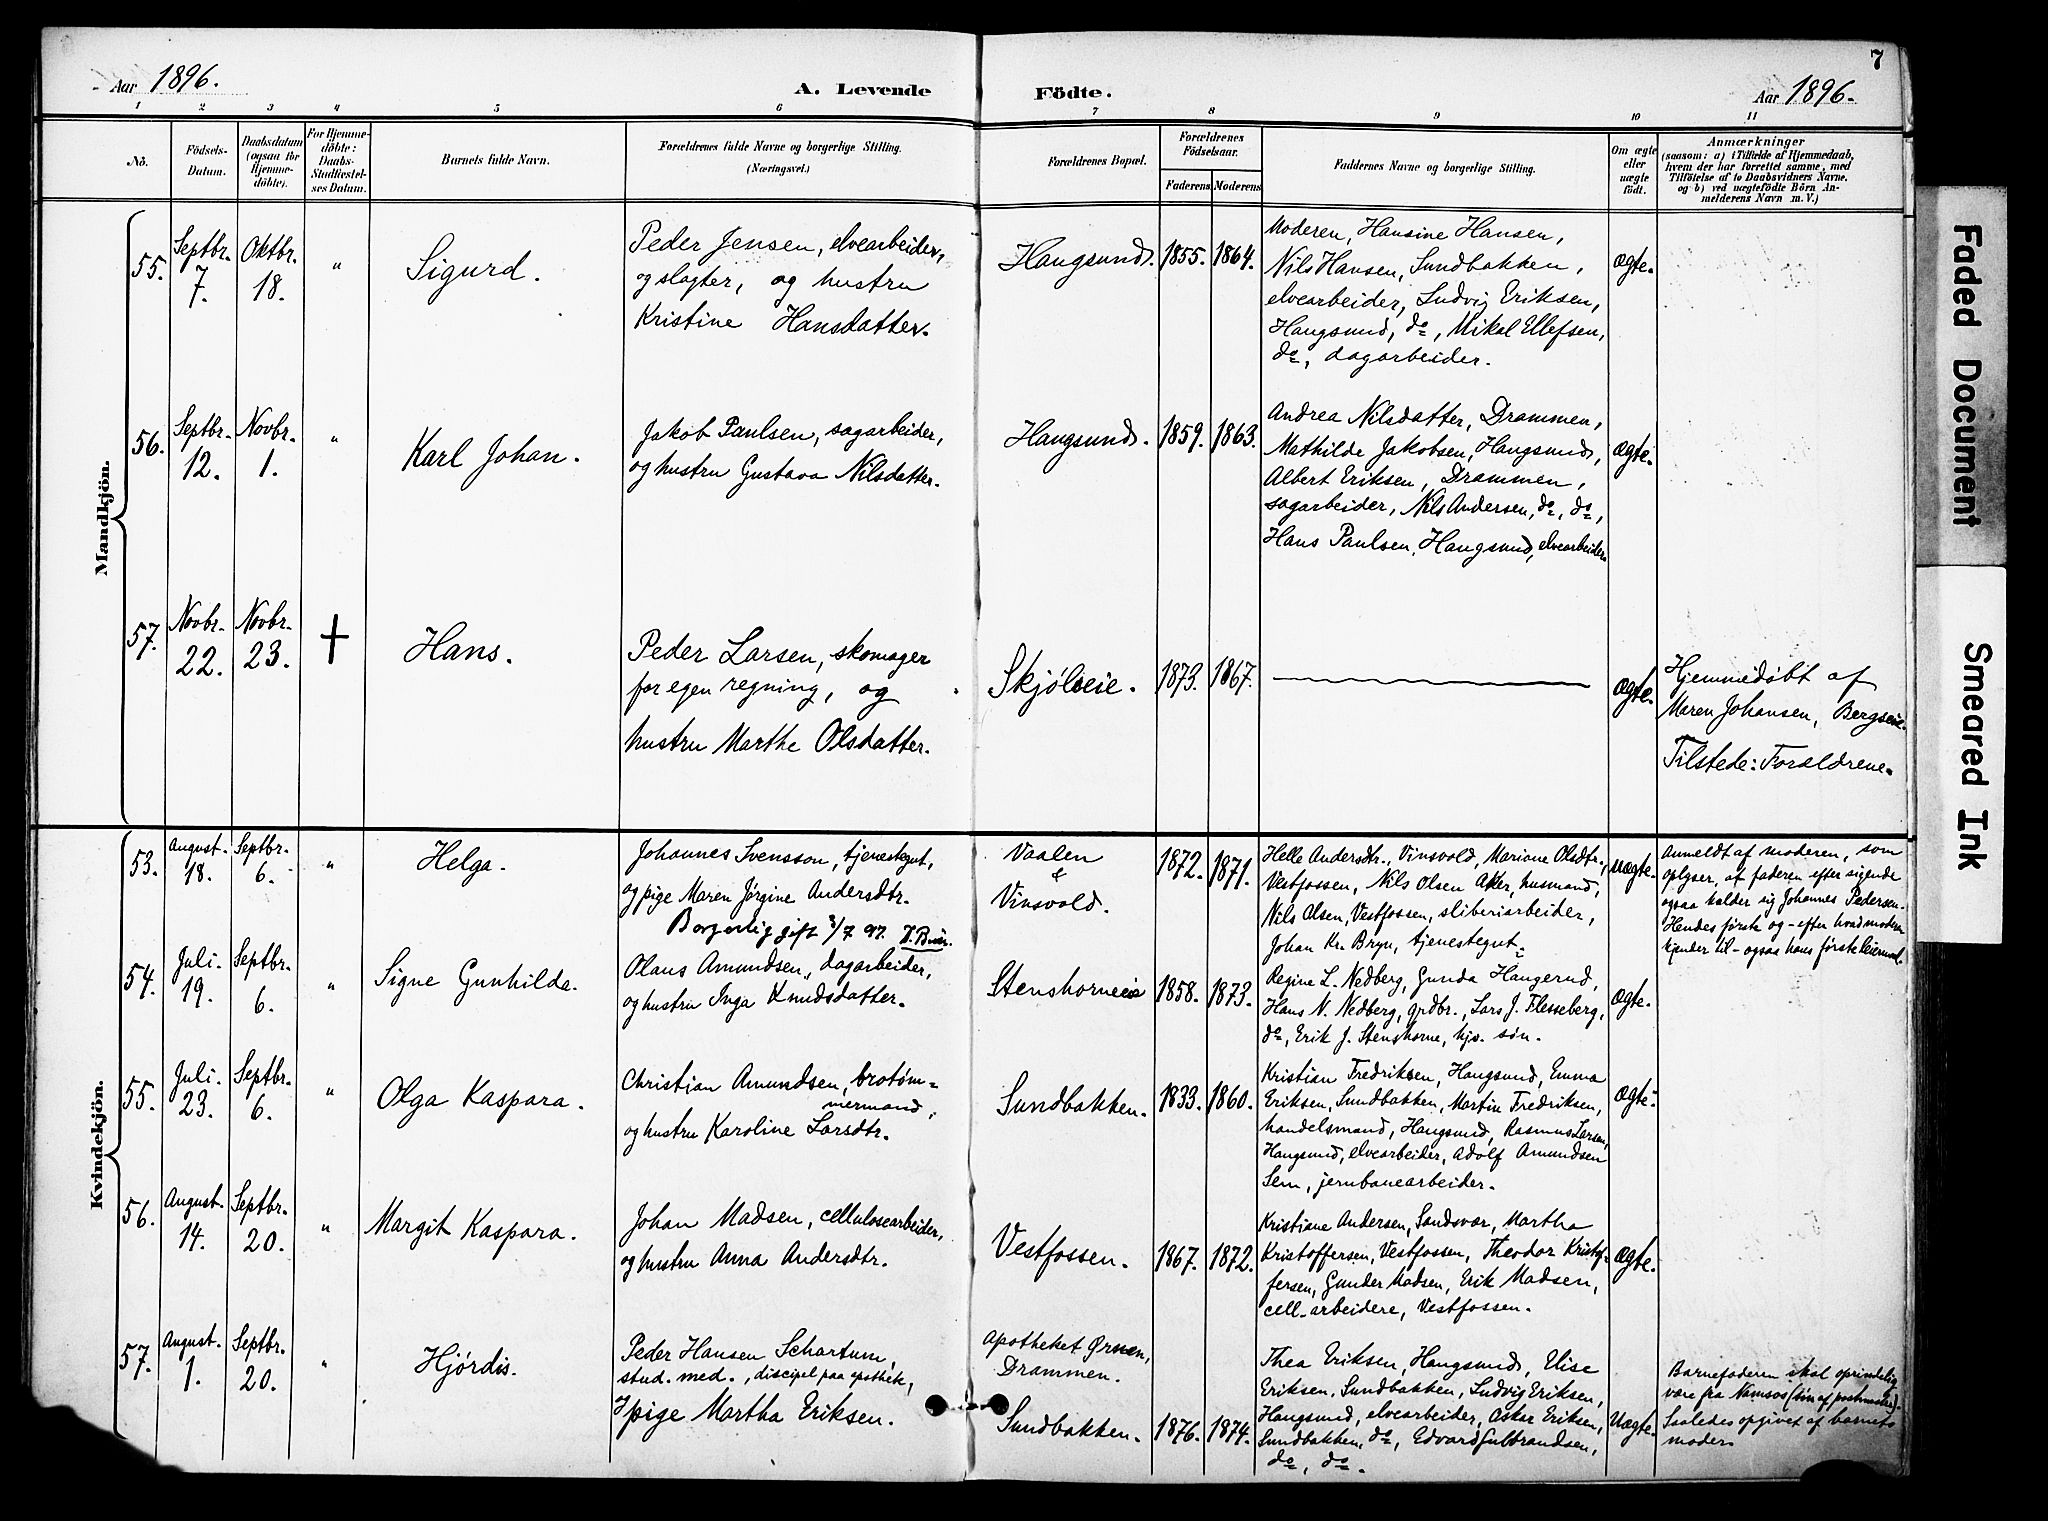 7
Aar 1896.
A. Levende Födte.
Aar 1896.
1 2 3 4 5 6 7 8 9 10 11
No.
Födsels-
Datum.
Daabsdatum
(ogsaa for
Hjemme-
döbte).
For Hjemme-
döbte:
Daabs-
Stadfæstel-
ses Datum.
Barnets fulde Navn.
Forældrenes fulde Navne og borgerlige Stilling.
(Næringsvei.)
Forældrenes Bopæl.
Forældrenes
Födselsaar.
Faderens Moderens
Faddernes Navne og borgerlige Stilling.
Om ægte
eller
uægte
födt.
Anmærkninger
(saasom: a) i Tilfælde af Hjemmedaab,
hvem der har forrettet samme, med
Tilföielse af to Daabsvidners Navne.
og b) ved uægtefödte Börn An-
melderens Navn m. V.)
Mandkjön.
55.
Septbr.
7.
Oktbr.
18.
"
Sigurd.
Peder Jensen, elvearbeider,
og slagter, og hustru
Kristine Hansdatter.
Haugsund.
1855.
1864.
Moderen, Hansine Hansen,
Nils Hansen, Sundbakken,
elvearbeider, Ludvig Eriksen,
Haugsund, do, Mikal Ellefsen,
do, dagarbeider.
Ægte.
56.
Septbr.
12.
Novbr.
1.
"
Karl Johan.
Jakob Paulsen, sagarbeider,
og hustru Gustava Nilsdatter.
Haugsund.
1859.
1863.
Andrea Nilsdatter, Drammen,
Mathilde Jakobsen, Haugsund,
Albert Eriksen, Drammen,
sagarbeider, Nils Andersen, do, do,
Hans Paulsen, Haugsund, elvearbeider
Ægte.
57.
Novbr.
22.
Novbr.
23.
†
Hans.
Peder Larsen, skomager
for egen regning, og
hustru Marthe Olsdatter.
Skjöleeie.
1873.
1867.
Ægte.
Hjemmedøbt af
Maren Johansen, Bergseie.
Tilstede: Forældrene.
Kvindekjön.
53.
August.
18.
Septbr.
6.
"
Helga.
Johannes Svensson, tjenestegut,
og pige Maren Jørgine Andersdtr.
Borgerlig gift 3/7 97.
Vaalen
&
Vinsvold.
1872.
1871.
Helle Andersdtr., Vinsvold, Mariane Olsdtr.,
Vestfossen, Nils Olsen Aker, husmand,
Nils Olsen, Vestfossen, sliberiarbeider,
Johan Kr. Bryn, tjenestegut.
Uægte.
Anmeldt af moderen, som
oplyser, at faderen efter sigende
ogsaa kalder sig Johannes Pedersen.
Hendes første og - efter hvad moderen
kjender til - ogsaa hans første leiermaal.
54.
Juli.
19.
Septbr.
6.
"
Signe Gunhilda.
Olaus Amundsen, dagarbeider,
og hustru Inga Knudsdatter.
Stenshorneeie
1858.
1873.
Regine L. Nedberg, Gunda Haugerud,
Hans N. Nedberg, grdbr., Lars J. Flesseberg,
do, Erik J. Stenshorne, hjv. søn.
Ægte.
55.
Juli.
23.
Septbr.
6.
"
Olga Kaspara.
Christian Amundsen, brotøm-
mermand,
og hustru Karoline Larsdtr.
Sundbakken.
1833.
1860.
Kristian Fredriksen, Haugsund, Emma
Eriksen, Sundbakken, Martin Fredriksen,
handelsmand, Haugsund, Rasmus Larsen,
Haugsund, elvearbeider, Adolf Amundsen
Sem, jernbanearbeider.
Ægte.
56.
August.
14.
Septbr.
20.
"
Margit Kaspara.
Johan Madsen, cellulosearbeider,
og hustru Anna Andersdtr.
Vestfossen.
1867.
1872.
Kristiane Andersen, Sandsvær, Martha
Kristoffersen, Vestfossen, Theodor Kristof-
fersen, Gunder Madsen, Erik Madsen,
cell-arbeidere, Vestfossen.
Ægte.
57.
August.
1.
Septbr.
20.
"
Hjørdis.
Peder Hansen Schartum,
stud. med., discipel paa apothek,
& pige Martha Eriksen.
Apotheket Ørnen,
Drammen.
Sundbakken.
1876.
1874.
Thea Eriksen, Haugsund, Elise
Eriksen, Sundbakken, Ludvig Eriksen,
Haugsund, elvearbeider, Oskar Eriksen,
Sundbakken, do, Edvard Gulbrandsen,
do, do.
Uægte.
Barnefaderen skal oprindelig
være fra Namsos (søn af postmester).
Saaledes opgivet af barnets
moder.
Faded Document
Smeared Ink